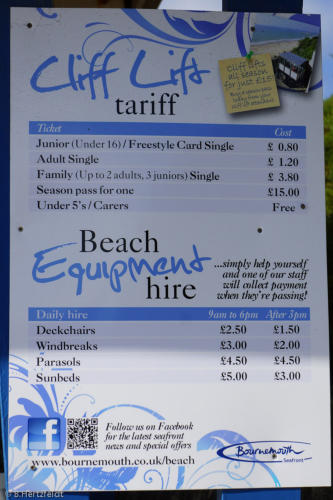 Cliff Lift
tariff
Cliff lifts
all season
for just £15
Ticket Cost
Junior (Under 16) / Freestyle Card Single £ 0.80
Adult Single £ 1.20
Family (Up to 2 adults, 3 juniors) Single £ 3.80
Season pass for one £15.00
Under 5's / Carers Free
Beach
Equipment
hire
...simply help yourself
and one of our staff
will collect payment
when they're passing!
Daily hire 9am to 6pm After 3pm
Deckchairs £2.50 £1.50
Windbreaks £3.00 £2.00
Parasols £4.50 £4.50
Sunbeds £5.00 £3.00
f
Follow us on Facebook
for the latest seafront
news and special offers
www.bournemouth.co.uk/beach
Bournemouth
Seafront
© B.Hertzfeldt